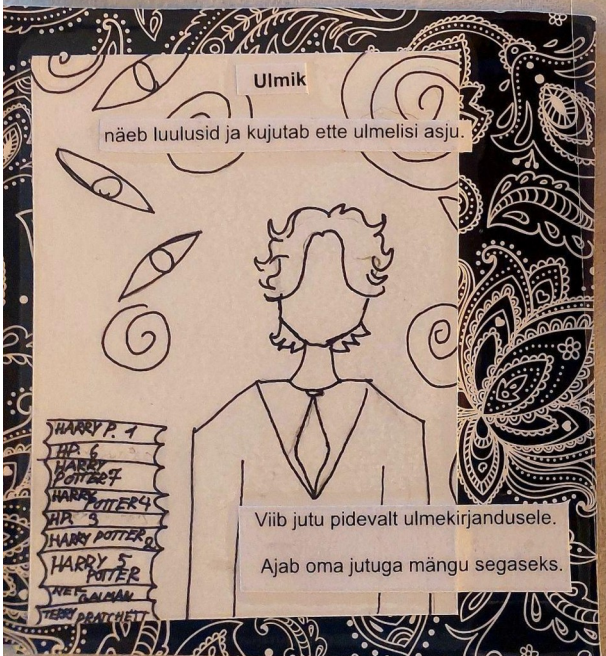 Ulmik
näeb luulusid ja kujutab ette ulmelisi asju.
HARRY P. 1
HP. 6
HARRY
POTTER 7
HARRY
POTTER 4
HP. 3
HARRY POTTER 2
HARRY 5
POTTER
GAIMAN
TERRY PRATCHETT
Viib jutu pidevalt ulmekirjandusele.
Ajab oma jutuga mängu segaseks.